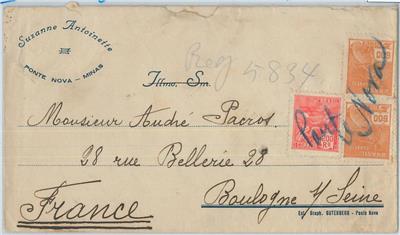 Suzanne Antoinette
PONTE NOVA - MINAS
Reg 4834
Illmo. Snr.
Monsieur André Pacros
28 rue Bellerie 28
Boulogne s/ Seine
France
Ponte Nova
600
200
RS
600
Est. Graph. GUTENBERG - Ponte Nova